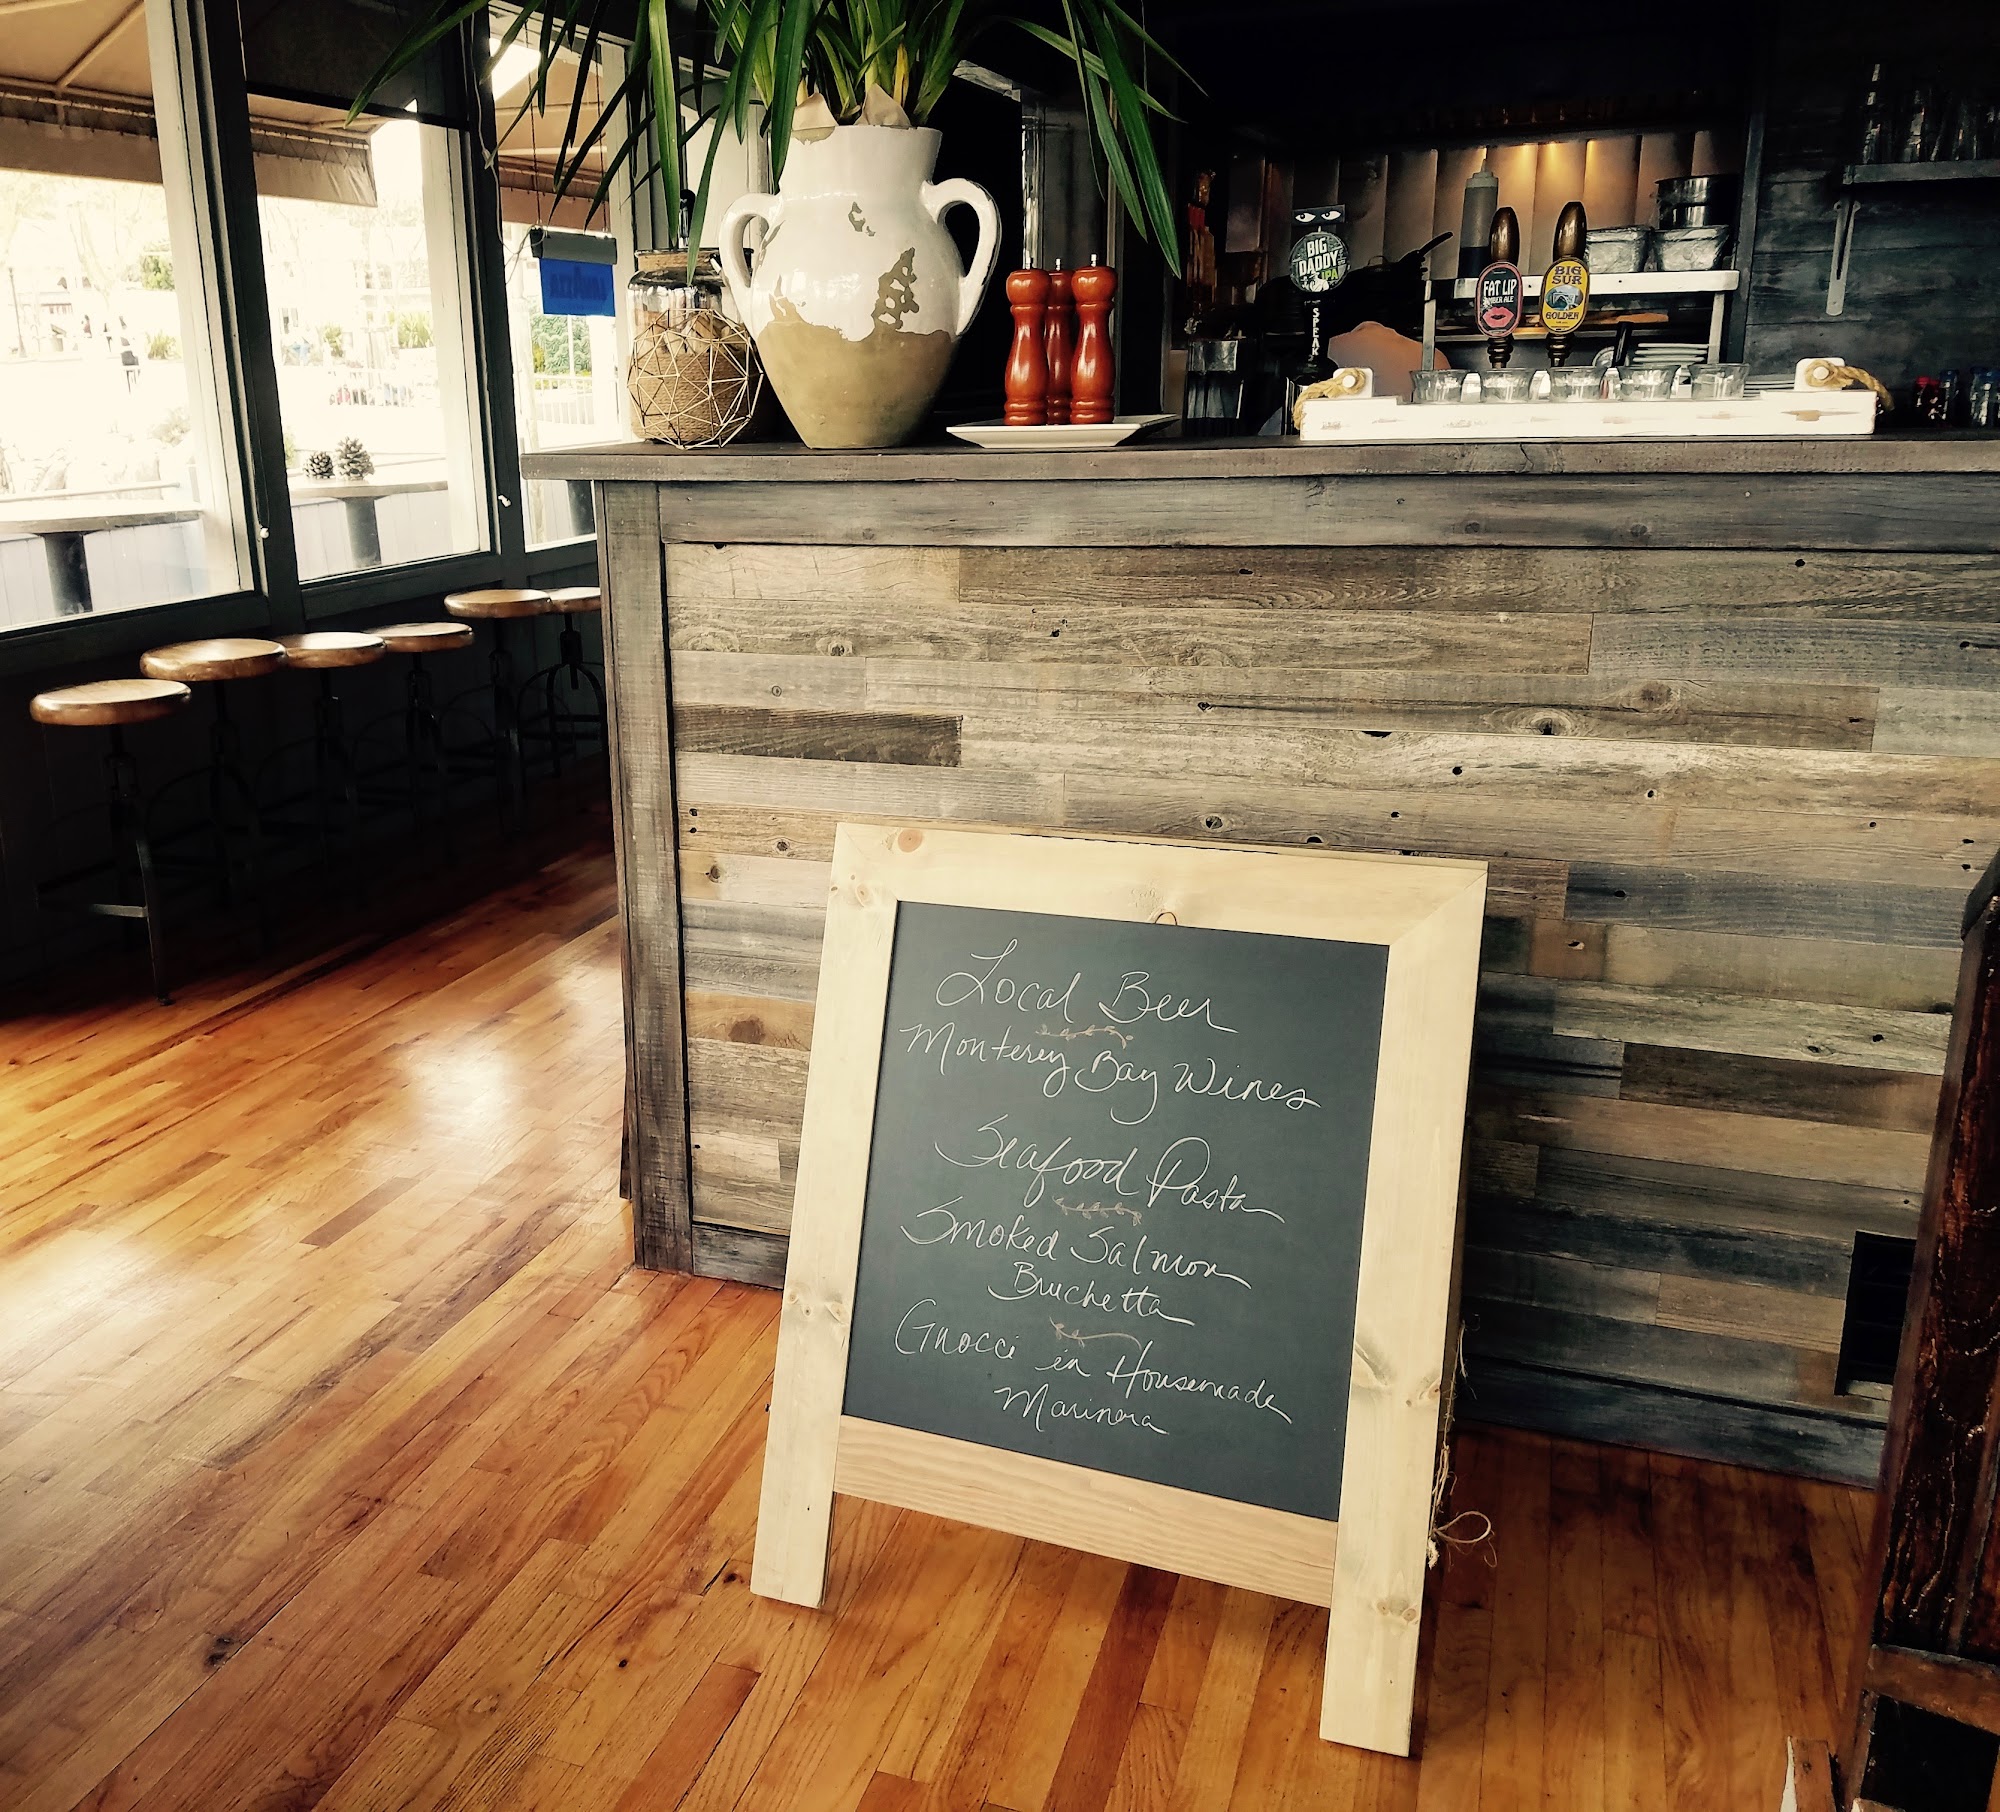 BIG
DADDY
IPA
SPEAK
FAT LIP
AMBER ALE
BIG
SUR
GOLDEN
Local Beer
Monterey Bay Wines
Seafood Pasta
Smoked Salmon
Bruchetta
Gnocci in Housemade
Marinera